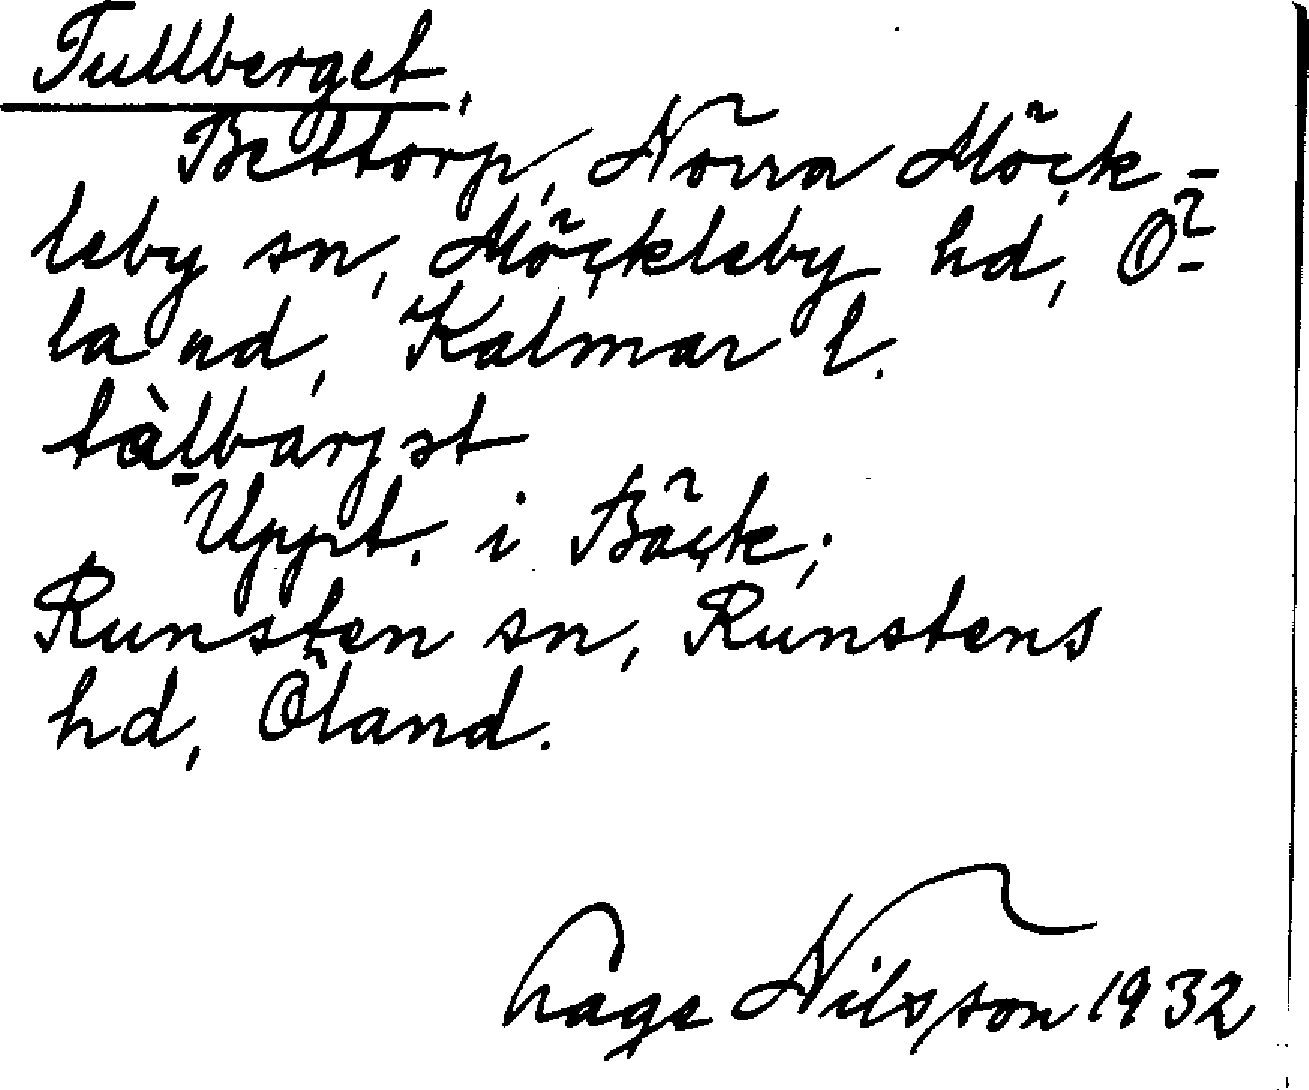 Tullberget,
Bettorp, Norra Möck-
leby sn, Möckleby hd, Ö-
land, Kalmar l.
Uppt. i Bäck,
Runsten sn, Runstens
hd, Öland.
Lage Nilsson 1932